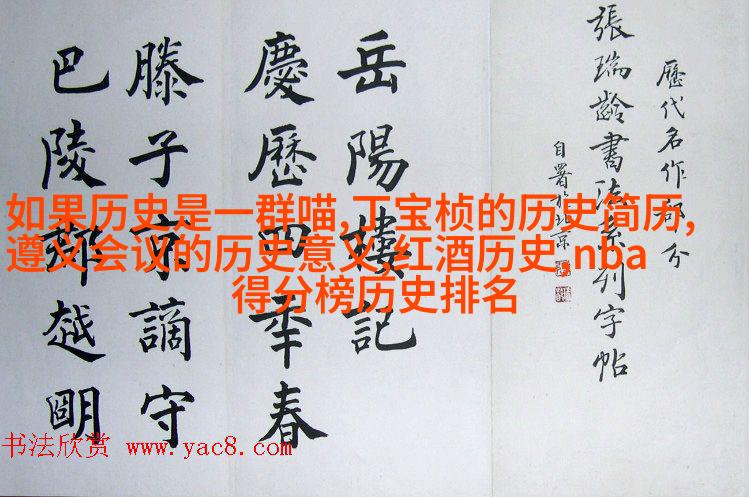 歷代名作部分
張瑞齡書法系列字帖
自署於北京
岳陽樓記
慶歷四年春
滕子京謫守
巴陵郡越明
如果历史是一群喵,丁宝桢的历史简历,
遵义会议的历史意义,红酒历史 nba
得分榜历史排名
书法欣赏 www.yac8.com